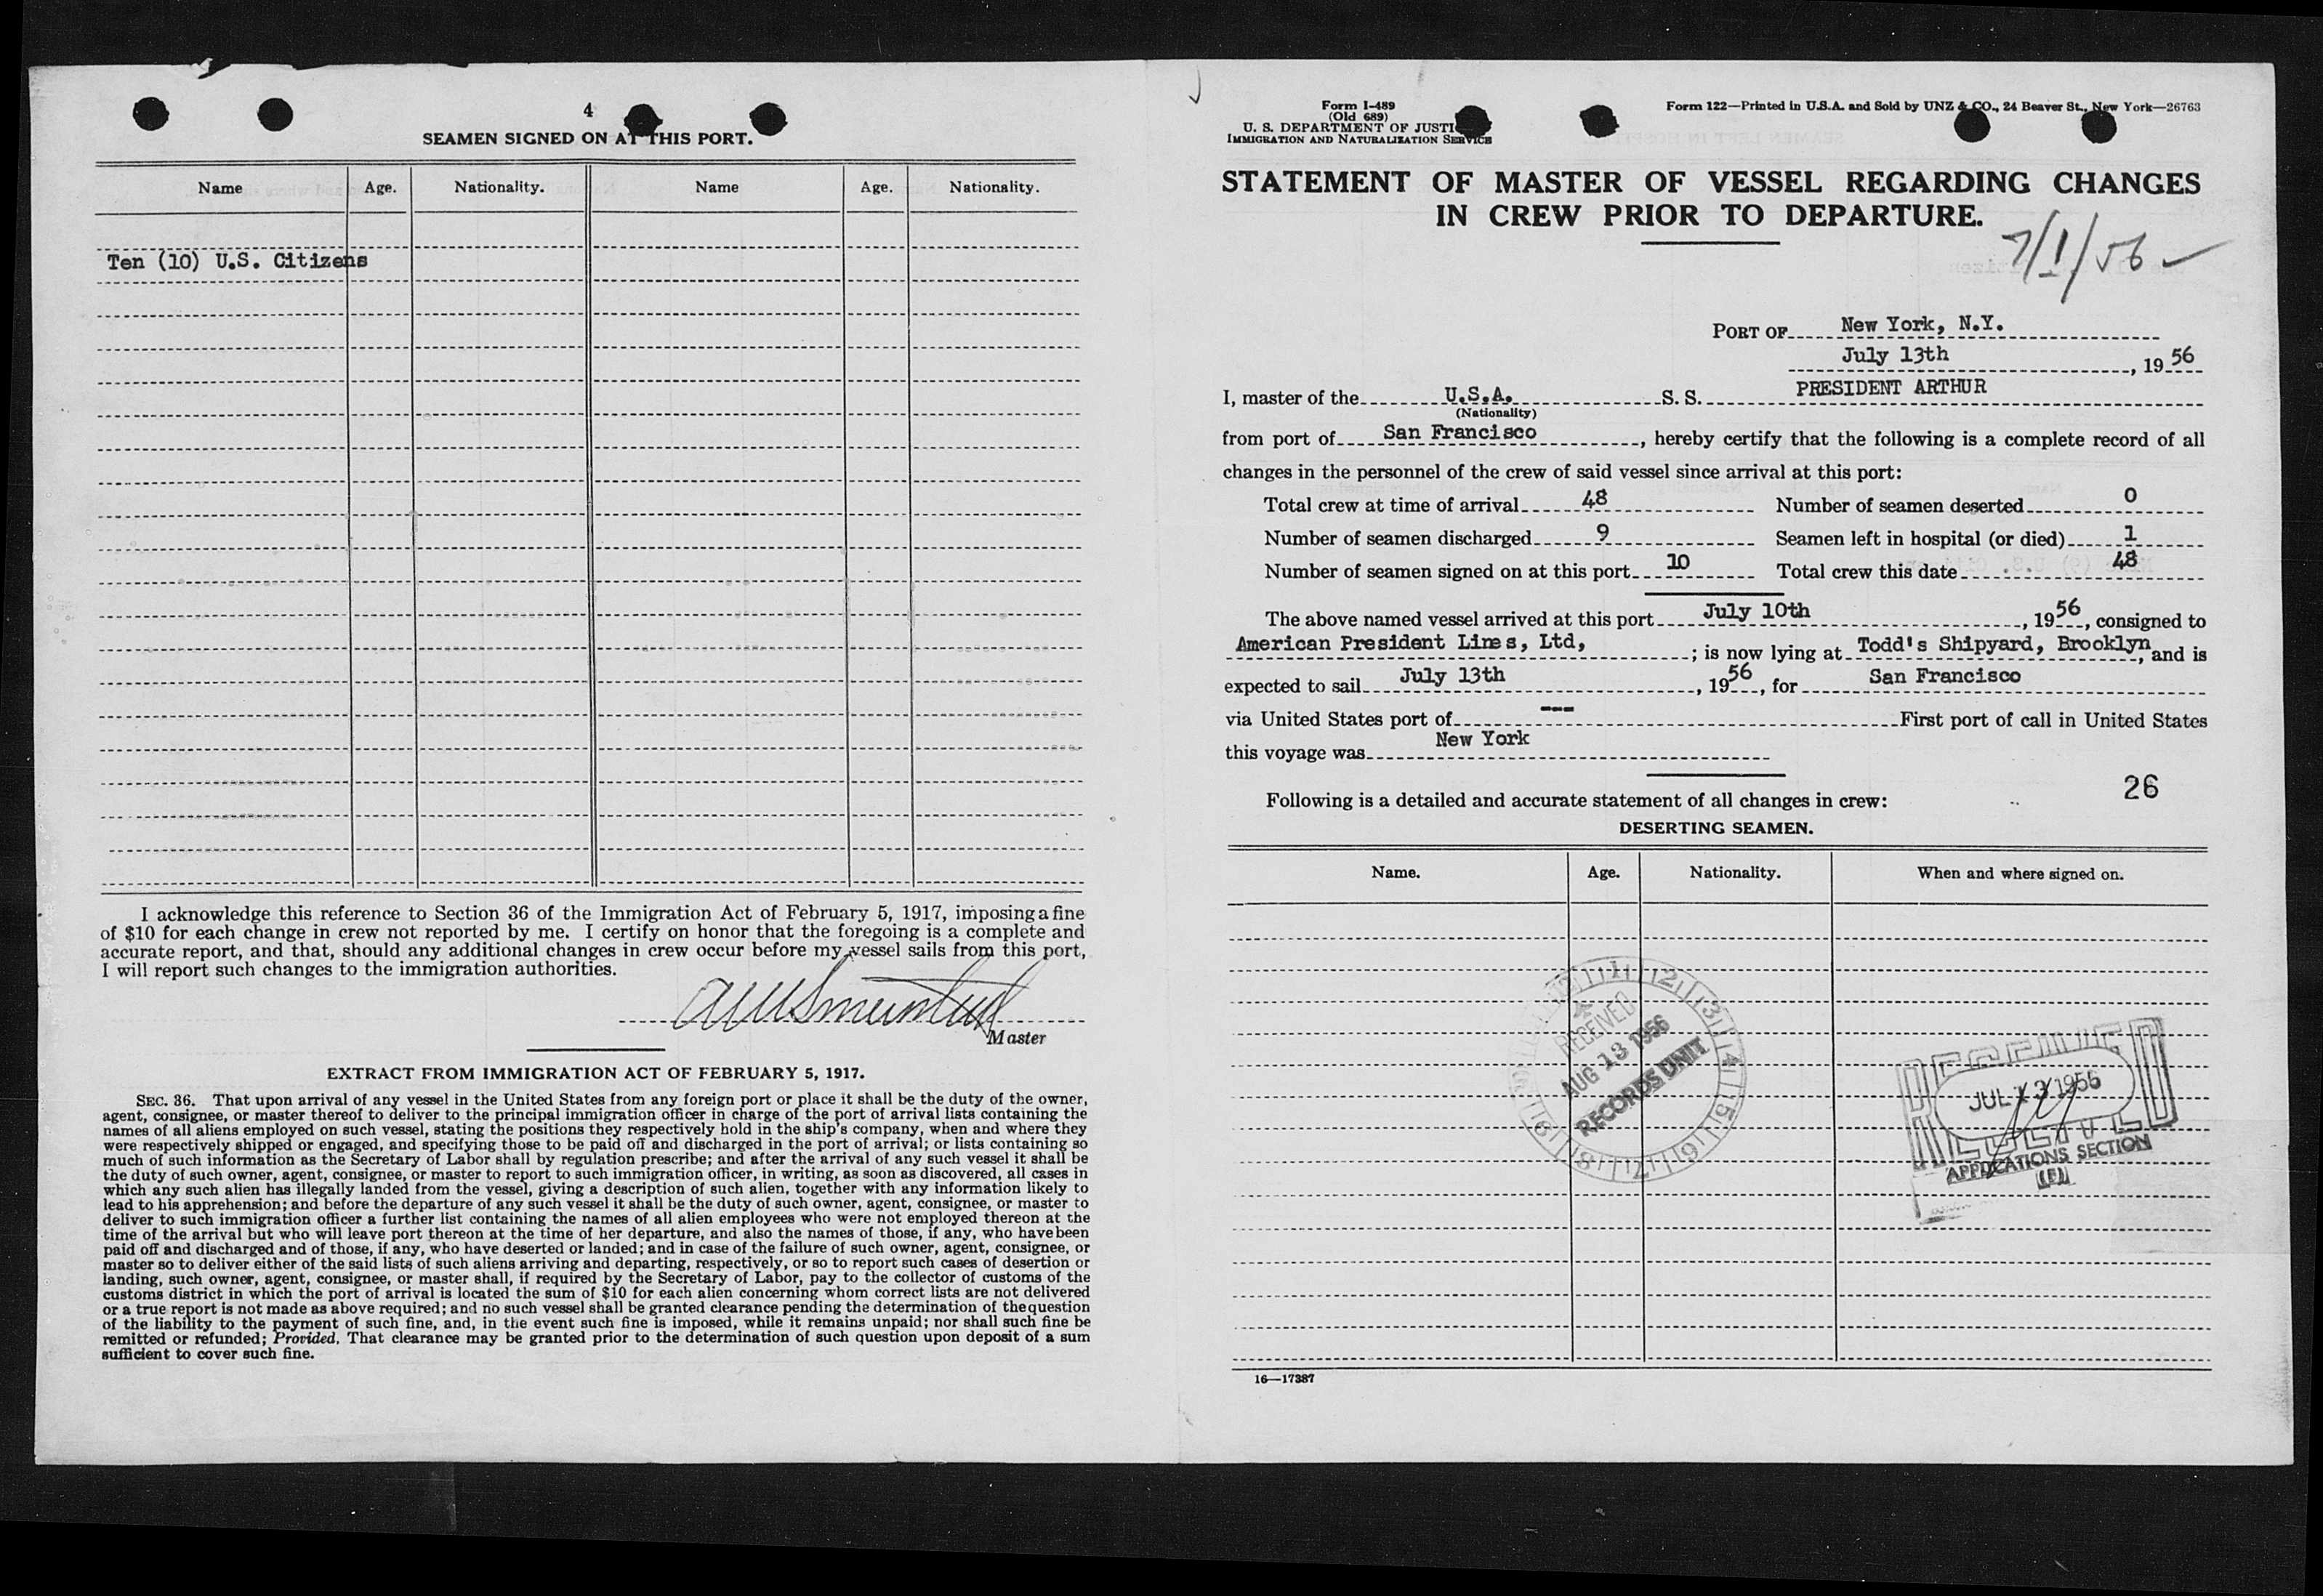 4
SEAMEN SIGNED ON AT THIS PORT.
Name Age. Nationality. Name Age. Nationality.
Ten (10) U.S. Citizens
I acknowledge this reference to Section 36 of the Immigration Act of February 5, 1917, imposing a fine
of $10 for each change in crew not reported by me. I certify on honor that the foregoing is a complete and
accurate report, and that, should any additional changes in crew occur before my vessel sails from this port,
I will report such changes to the immigration authorities.
Master
EXTRACT FROM IMMIGRATION ACT OF FEBRUARY 5, 1917.
SEC. 36. That upon arrival of any vessel in the United States from any foreign port or place it shall be the duty of the owner,
agent, consignee, or master thereof to deliver to the principal immigration officer in charge of the port of arrival lists containing the
names of all aliens employed on such vessel, stating the positions they respectively hold in the ship's company, when and where they
were respectively shipped or engaged, and specifying those to be paid off and discharged in the port of arrival; or lists containing so
much of such information as the Secretary of Labor shall by regulation prescribe; and after the arrival of any such vessel it shall be
the duty of such owner, agent, consignee, or master to report to such immigration officer, in writing, as soon as discovered, all cases in
which any such alien has illegally landed from the vessel, giving a description of such alien, together with any information likely to
lead to his apprehension; and before the departure of any such vessel it shall be the duty of such owner, agent, consignee, or master to
deliver to such immigration officer a further list containing the names of all alien employees who were not employed thereon at the
time of the arrival but who will leave port thereon at the time of her departure, and also the names of those, if any, who have been
paid off and discharged and of those, if any, who have deserted or landed; and in case of the failure of such owner, agent, consignee, or
master so to deliver either of the said lists of such aliens arriving and departing, respectively, or so to report such cases of desertion or
landing, such owner, agent, consignee, or master shall, if required by the Secretary of Labor, pay to the collector of customs of the
customs district in which the port of arrival is located the sum of $10 for each alien concerning whom correct lists are not delivered
or a true report is not made as above required; and no such vessel shall be granted clearance pending the determination of the question
of the liability to the payment of such fine, and, in the event such fine is imposed, while it remains unpaid; nor shall such fine be
remitted or refunded; Provided, That clearance may be granted prior to the determination of such question upon deposit of a sum
sufficient to cover such fine.
Form I-489
(Old 689)
U. S. DEPARTMENT OF JUSTI
IMMIGRATION AND NATURALIZATION SERVICE
Form 122—Printed in U.S.A. and Sold by UNZ & CO., 24 Beaver St., New York—26763
STATEMENT OF MASTER OF VESSEL REGARDING CHANGES
IN CREW PRIOR TO DEPARTURE.
7/1/56
PORT OF New York, N.Y.
July 13th, 1956
I, master of the U.S.A. S. S. PRESIDENT ARTHUR
(Nationality)
from port of San Francisco, hereby certify that the following is a complete record of all
changes in the personnel of the crew of said vessel since arrival at this port:
Total crew at time of arrival 48 Number of seamen deserted 0
Number of seamen discharged 9 Seamen left in hospital (or died) 1
Number of seamen signed on at this port 10 Total crew this date 48
The above named vessel arrived at this port July 10th, 1956, consigned to
American President Lines, Ltd, ; is now lying at Todd's Shipyard, Brooklyn, and is
expected to sail July 13th, 1956, for San Francisco
via United States port of --- First port of call in United States
this voyage was New York
26
Following is a detailed and accurate statement of all changes in crew:
DESERTING SEAMEN.
Name. Age. Nationality. When and where signed on.
RECEIVED
AUG 13 1956
RECORDS UNIT
RECEIVED
JUL 13 1956
APPLICATIONS SECTION
16—17387